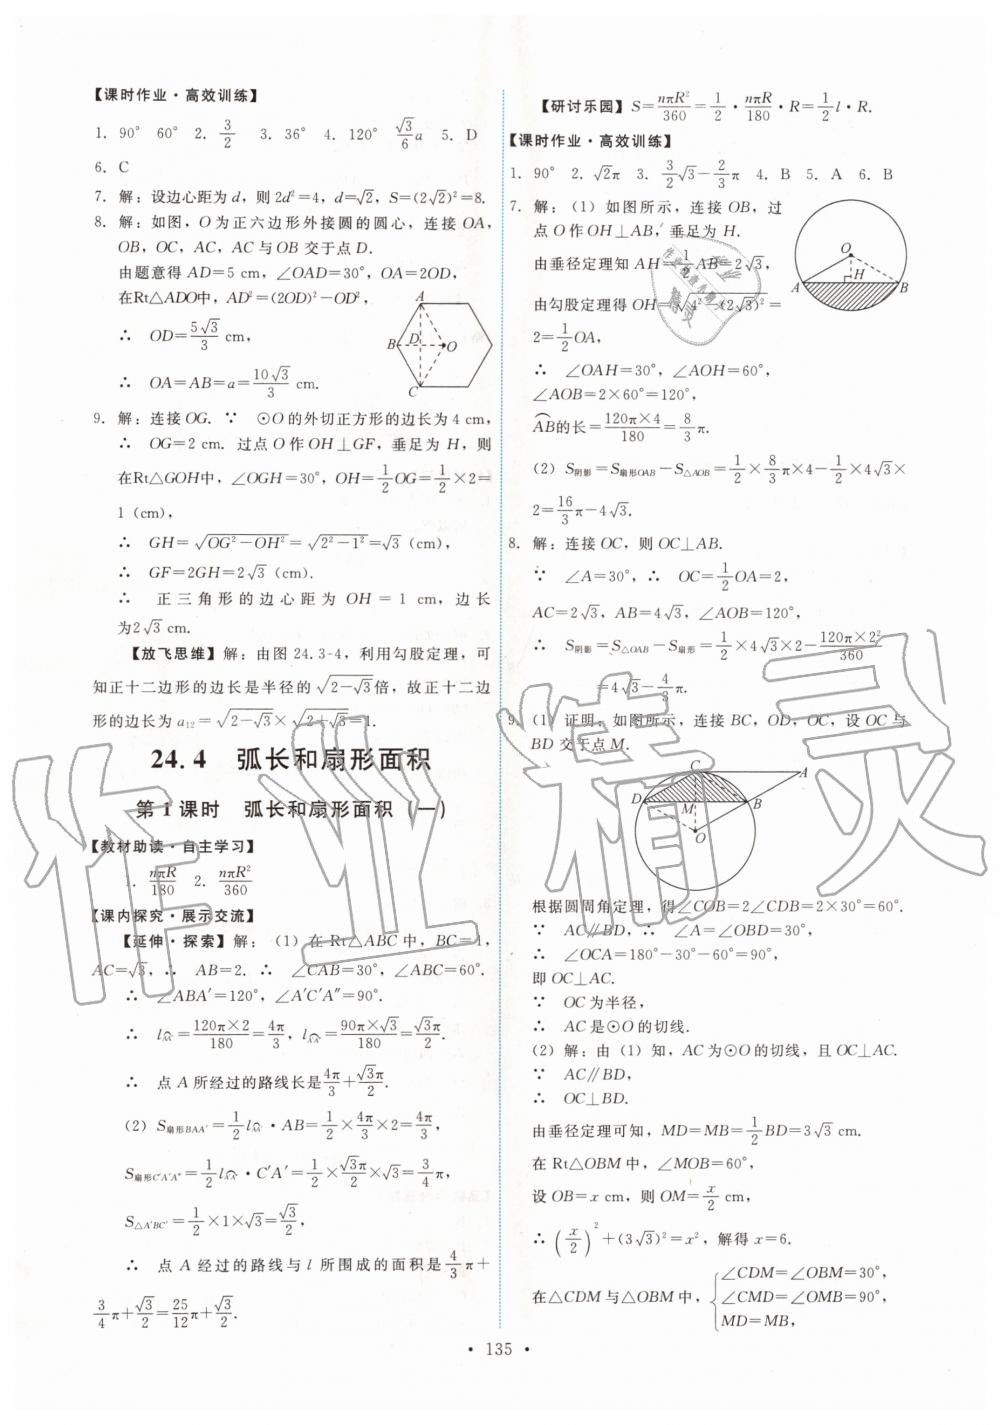 【课时作业·高效训练】
1. 90° 60° 2. 3/2 3. 36° 4. 120° √3/6 a 5. D
6. C
7. 解：设边心距为d，则2d²=4，d=√2，S=(2√2)²=8.
8. 解：如图，O为正六边形外接圆的圆心，连接OA，
OB，OC，AC，AC与OB交于点D.
由题意得AD=5 cm，∠OAD=30°，OA=2OD，
在Rt△ADO中，AD²=(2OD)²−OD²，
∴ OD=5√3/3 cm，
∴ OA=AB=a=10√3/3 cm.
A
B
D
O
C
9. 解：连接OG. ∵ ⊙O的外切正方形的边长为4 cm，
∴ OG=2 cm. 过点O作OH⊥GF，垂足为H，则
在Rt△GOH中，∠OGH=30°，OH=1/2 OG=1/2×2=
1(cm)，
∴ GH=√(OG²−OH²)=√(2²−1²)=√3(cm)，
∴ GF=2GH=2√3(cm).
∴ 正三角形的边心距为OH=1 cm，边长
为2√3 cm.
【放飞思维】解：由图24.3-4，利用勾股定理，可
知正十二边形的边长是半径的√(2−√3)倍，故正十二边
形的边长为a₁₂=√(2−√3)×√(2+√3)=1.
24.4 弧长和扇形面积
第1课时 弧长和扇形面积(一)
【教材助读·自主学习】
1. nπR/180 2. nπR²/360
【课内探究·展示交流】
【延伸·探索】解：(1)在Rt△ABC中，BC=1，
AC=√3，∴ AB=2. ∴ ∠CAB=30°，∠ABC=60°.
∴ ∠ABA′=120°，∠A′C′A″=90°.
∴ l=120π×2/180=4π/3，l=90π×√3/180=√3π/2.
∴ 点A所经过的路线长是4π/3+√3π/2.
(2) S扇形BAA′=1/2 l·AB=1/2×4π/3×2=4π/3，
S扇形C′A′A″=1/2 l·C′A′=1/2×√3π/2×√3=3/4 π，
S△A′BC′=1/2×1×√3=√3/2，
∴ 点A经过的路线与l所围成的面积是4/3 π+
3/4 π+√3/2=25/12 π+√3/2.
【研讨乐园】S=nπR²/360=1/2·nπR/180·R=1/2 l·R.
【课时作业·高效训练】
1. 90° 2. √2π 3. 3/2 √3−2/3 π 4. B 5. A 6. B
7. 解：(1)如图所示，连接OB，过
点O作OH⊥AB，垂足为H.
由垂径定理知AH=1/2 AB=2√3，
由勾股定理得OH=√(4²−(2√3)²)=
2=1/2 OA，
∴ ∠OAH=30°，∠AOH=60°，
∠AOB=2×60°=120°，
AB的长=120π×4/180=8/3 π.
O
A
H
B
(2) S阴影=S扇形OAB−S△AOB=1/2×8/3 π×4−1/2×4√3×
2=16/3 π−4√3.
8. 解：连接OC，则OC⊥AB.
∵ ∠A=30°，∴ OC=1/2 OA=2，
AC=2√3，AB=4√3，∠AOB=120°，
∴ S阴影=S△OAB−S扇形=1/2×4√3×2−120π×2²/360
=4√3−4/3 π.
9. (1)证明：如图所示，连接BC，OD，OC，设OC与
BD交于点M.
C
A
D
M
B
O
根据圆周角定理，得∠COB=2∠CDB=2×30°=60°.
∵ AC∥BD，∴ ∠A=∠OBD=30°.
∴ ∠OCA=180°−30°−60°=90°，
即OC⊥AC.
∵ OC为半径，
∴ AC是⊙O的切线.
(2)解：由(1)知，AC为⊙O的切线，且OC⊥AC.
∵ AC∥BD，
∴ OC⊥BD.
由垂径定理可知，MD=MB=1/2 BD=3√3 cm.
在Rt△OBM中，∠MOB=60°，
设OB=x cm，则OM=x/2 cm，
∴ (x/2)²+(3√3)²=x²，解得x=6.
在△CDM与△OBM中，{∠CDM=∠OBM=30°，
∠CMD=∠OMB=90°，
MD=MB，
· 135 ·
作业精灵